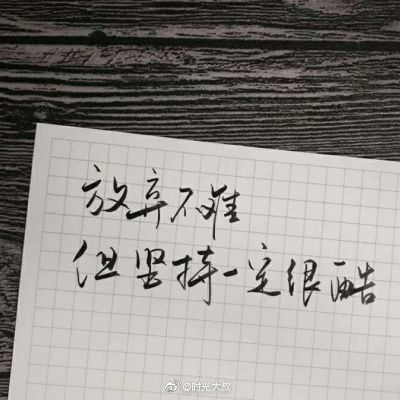 放弃不难
但坚持一定很酷
@时光大叔